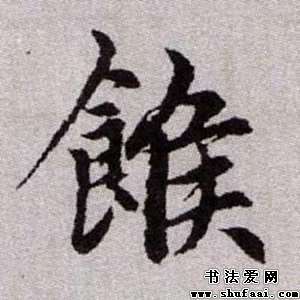 餱
书法爱网
www.shufaai.com